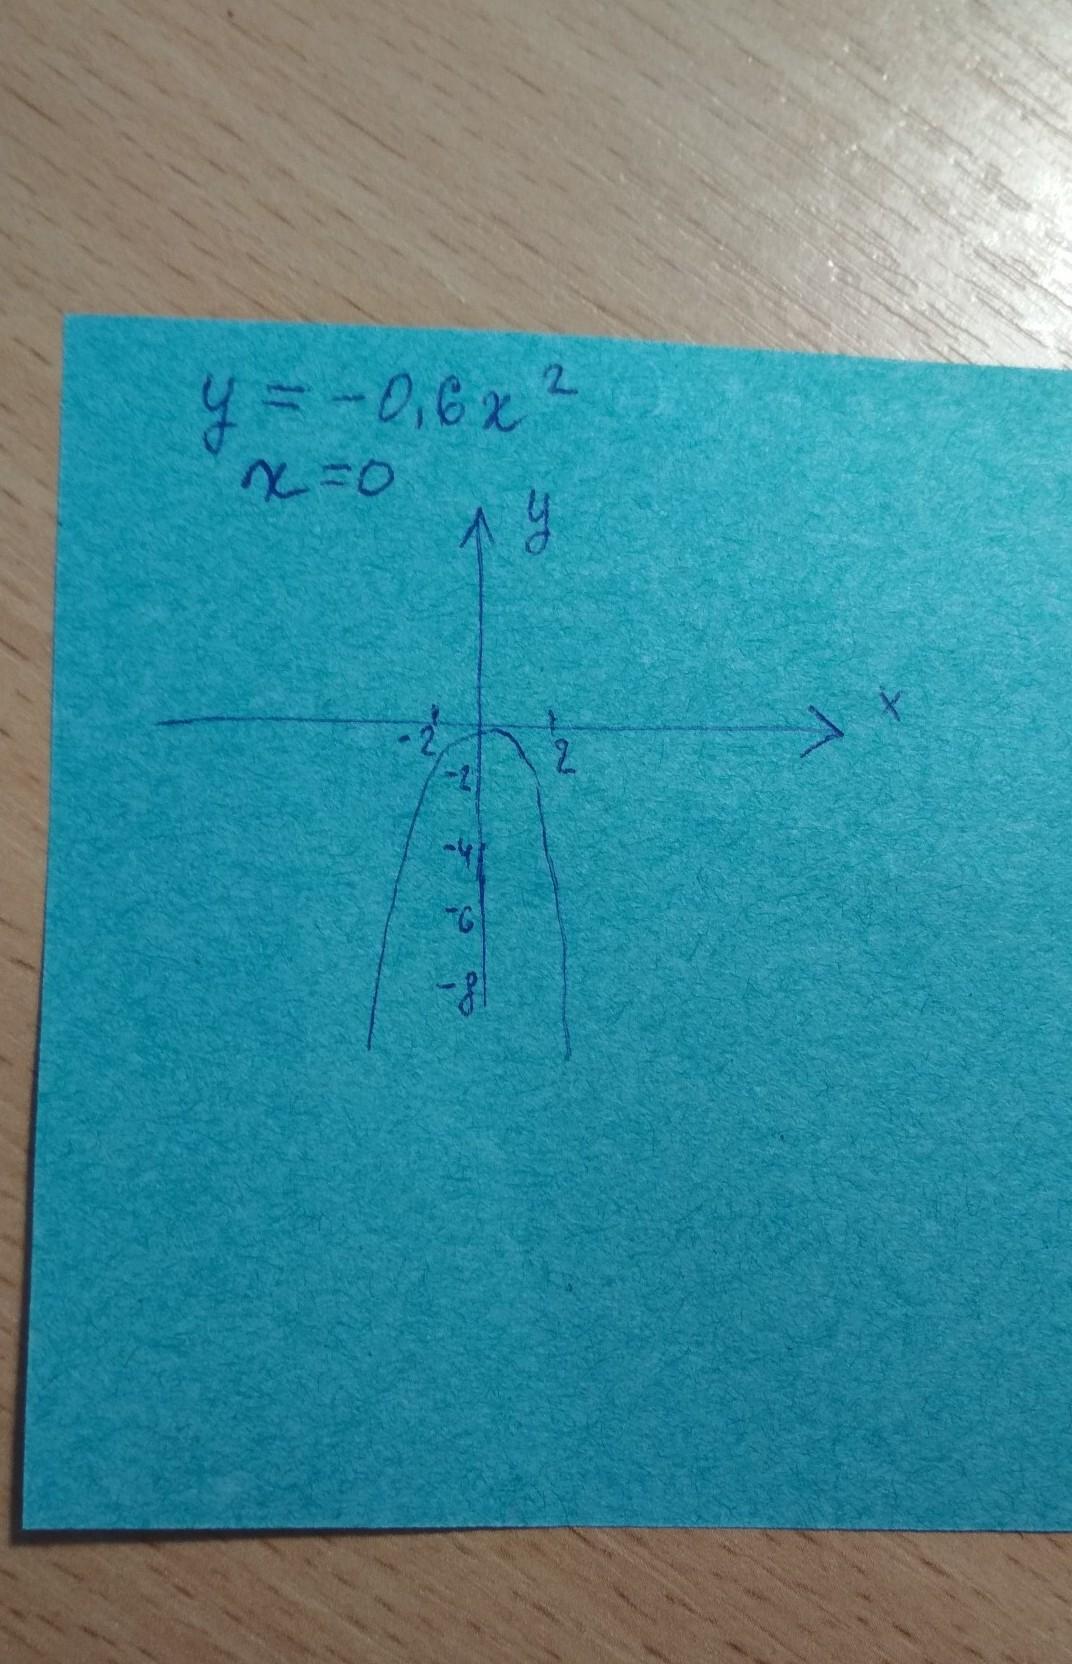 y = -0,6x²
x = 0
y
x
-2
2
-2
-4
-6
-8